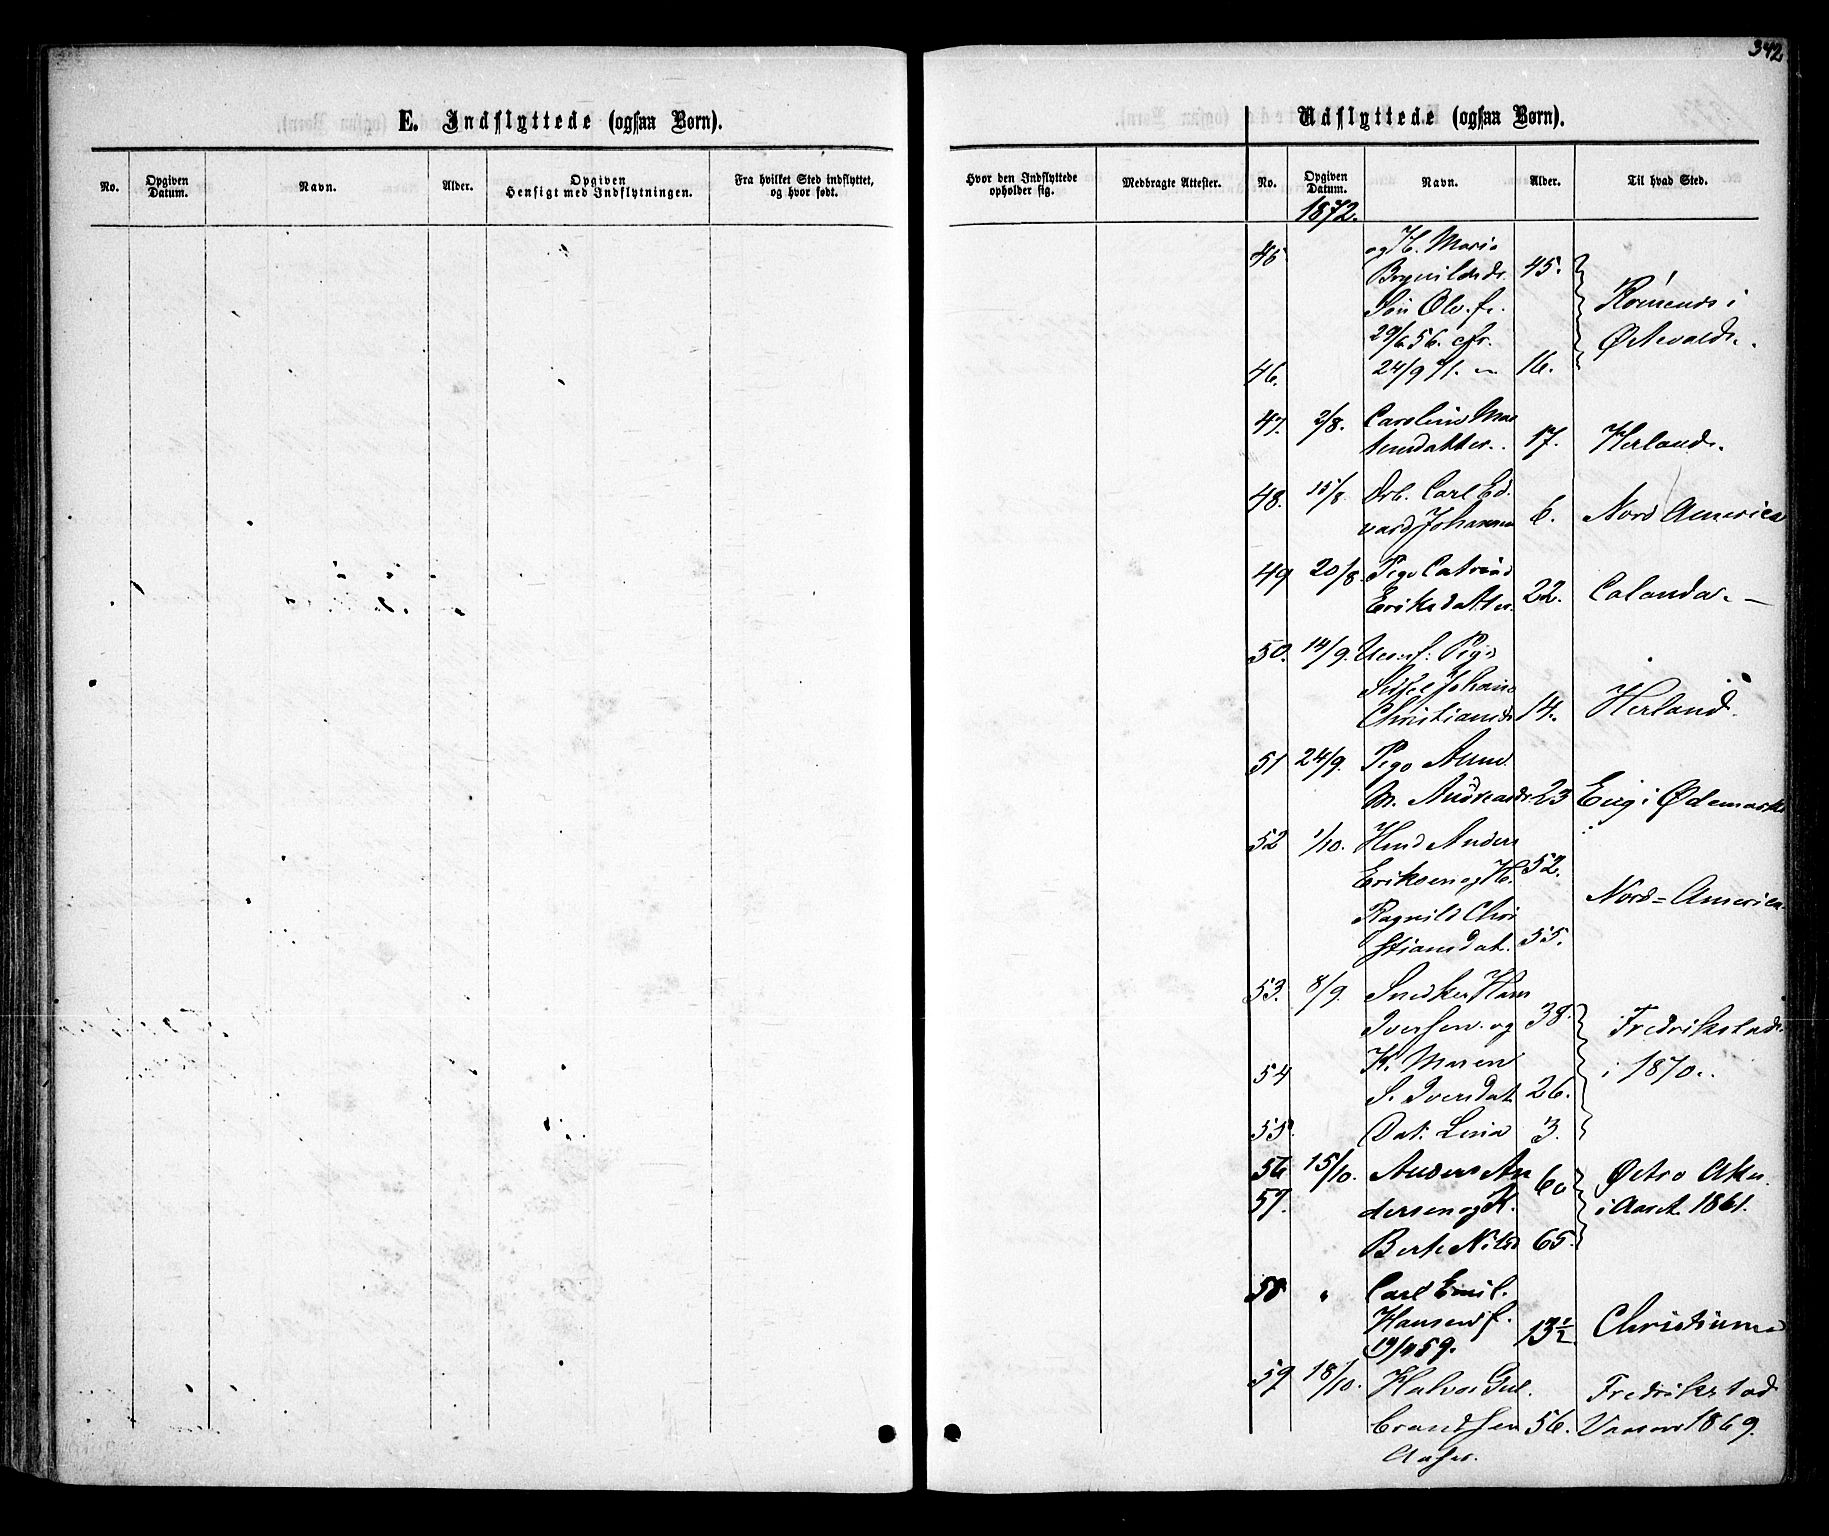 342
E. Indflyttede (ogsaa Børn).
Udflyttede (ogsaa Børn).
No. Opgiven Datum. Navn. Alder. Opgiven Hensigt med Indflytningen. Fra hvilket Sted indflyttet, og hvor født. Hvor den Indflyttede opholder sig. Medbragte Attester. No. Opgiven Datum. Navn. Alder. Til hvad Sted.
1872.
45 og H. Maria
45.
Søn Ole. f. Rømends i
29/6 56. cfr.
46. 24/9 71. 16.
47. 2/8. Caroline Mar
tensdatter. 17. Herland.
48. 15/8. Carl Ed.
vard Johansen 6. Nord America
49 20/8. Pige Catrine
Eriksdatter. 22.
50. 14/9. Uconf. Pige
Johane
Christiansd 14. Herland.
51 24/9. Pige Anne
M. Andreasdr. 23 Eng i Ødemark
52 1/10. Anders
Eriksen og H. 52.
Ragnild Chri Nord=America
stiansdat. 55.
53. 8/9. Snedker Hans
Iversen og 38. Fredrikstad
54 K. Maren i 1870.
S. Iversdat. 26.
55. Dat. Lina 3.
56 15/10. Anders An 60
57. dersen og K. i Aaret 1861.
Berte Nilsd 65.
58 " Carl Emil.
Hansen f. 13½. Christiania
59.
59 18/10. Halvor Gul. Fredrikstad
brandsen 56. 1869.